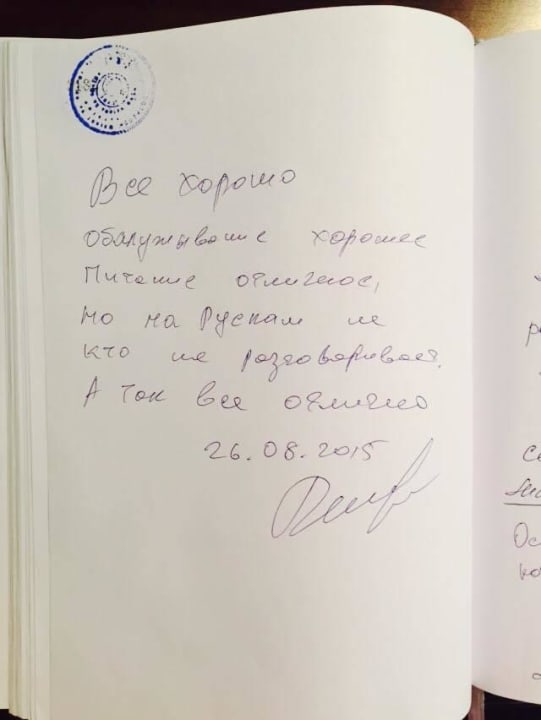 Все хорошо
обалуживание хорошее
Питание отличное,
но на Рускам не
кто не разговоривает.
А так все отлично
26.08.2015